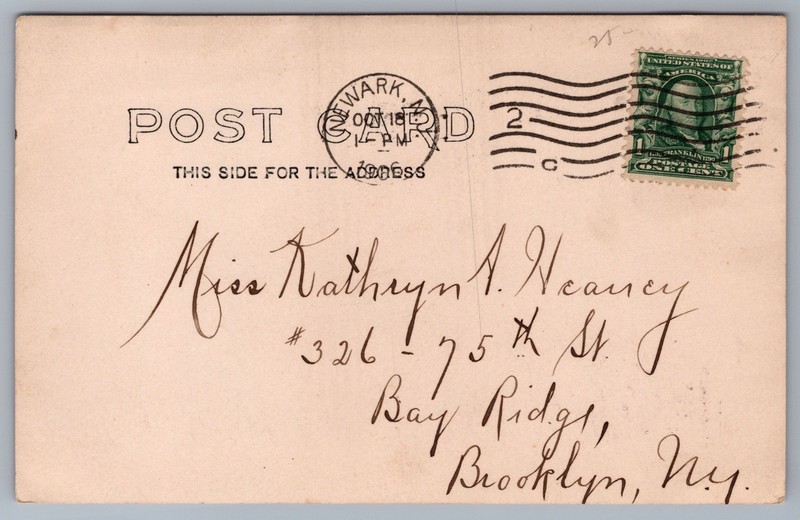 25-
POST CARD
THIS SIDE FOR THE ADDRESS
NEWARK, N.J.
OCT 18
1-PM
1906
2
C
SERIES 1902
UNITED STATES OF
AMERICA
1 FRANKLIN 1
POSTAGE
ONE CENT
Miss Kathryn A. Heaney
#326 - 75th St.
Bay Ridge,
Brooklyn, N.y.